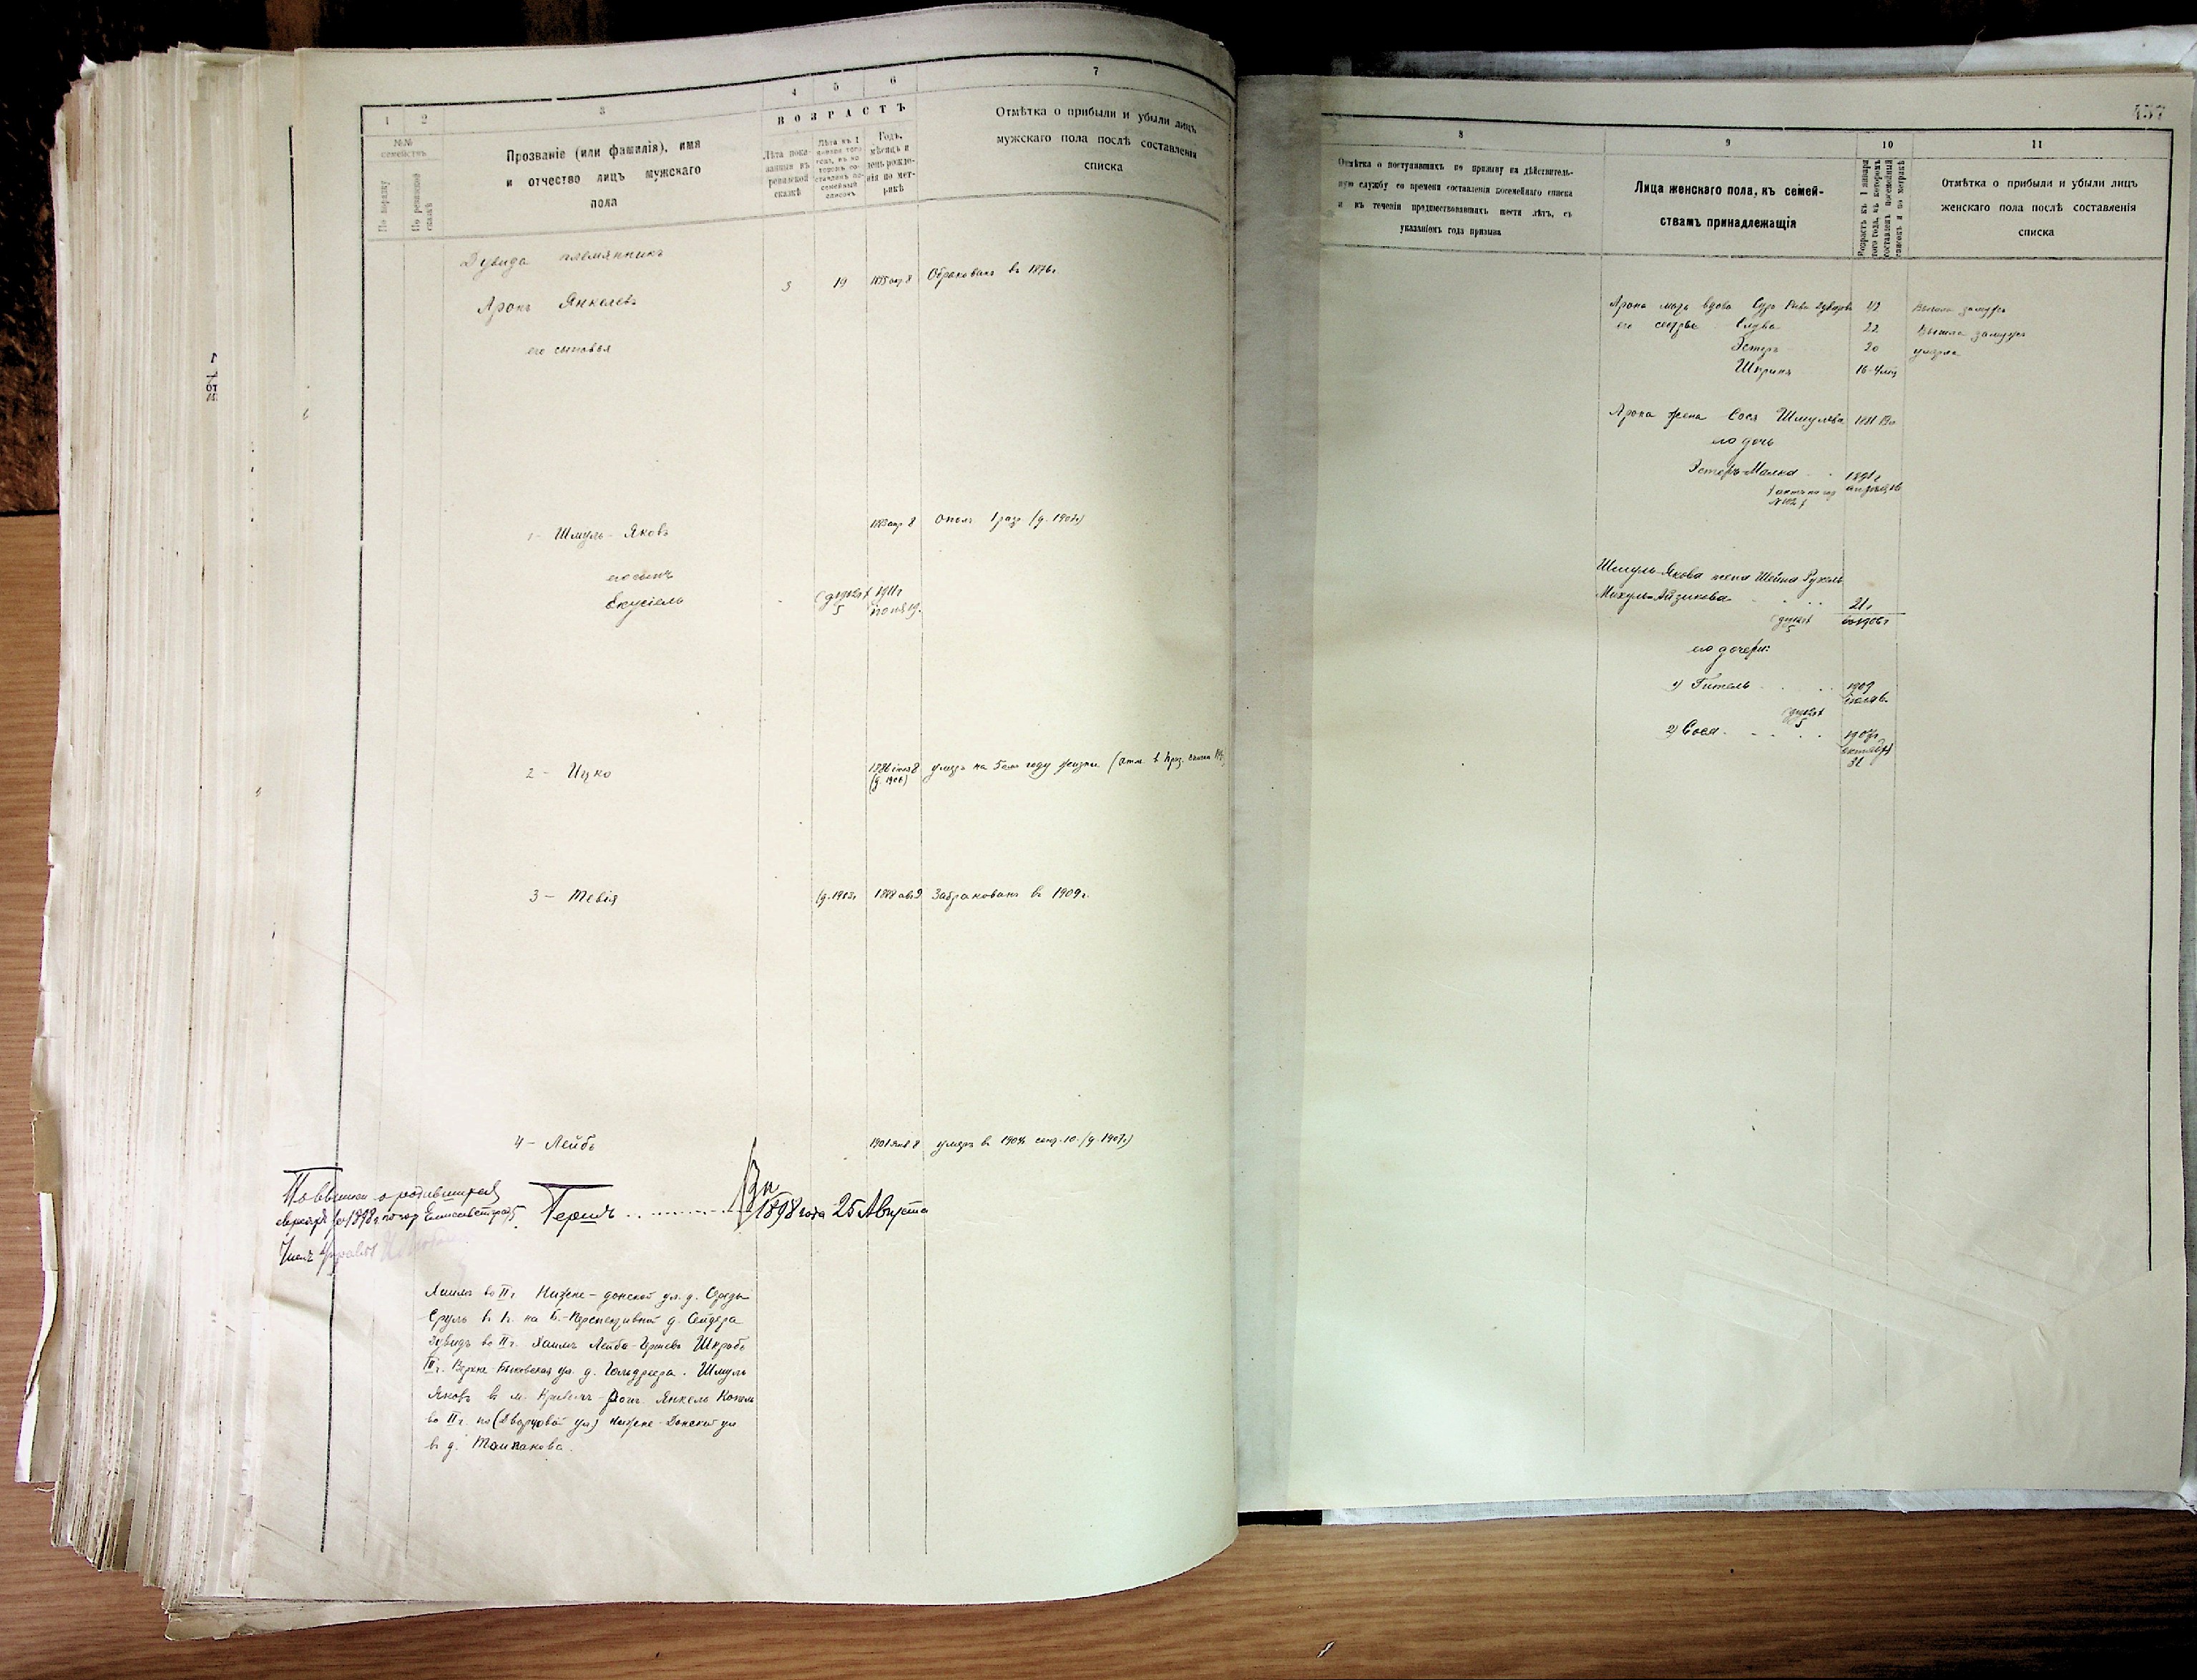 1
2
3
4
5
6
7
ВОЗРАСТЪ
№№ семействъ
По порядку
По ревизской сказкѣ
Прозваніе (или фамилія), имя
и отчество лицъ мужскаго
пола
Лѣта пока-
занныя въ
ревизской
сказкѣ
Лѣта къ 1
января того
года, въ ко-
торомъ со-
ставленъ по-
семейный
списокъ
Годъ,
мѣсяцъ и
день рожде-
нія по мет-
рикѣ
Отмѣтка о прибыли и убыли лицъ
мужскаго пола послѣ составленія
списка
Дувида племянникъ
Аронъ Янкелевъ 3 19 1855 апр 8 Обракованъ въ 1876 г
его сыновья
1 - Шмуль-Яковъ 1883 апр 8 ополч. 1 разр. (д. 1907г)
его сынъ
Екусіель 1911 г
2 - Ицко 1886 8 умеръ на 5ом году жизни
3 - Тевія (д. 1903г 1888 авг 9 Забракованъ въ 1909 г.
4 - Лейбъ 1901 янв 8 умеръ въ 1904 сент. 10. (д. 1907г)
Гершъ 1898 года 25 Августа
Хаимъ во II ч Нижне-донской ул. д.
Сруль въ на Б.-Перспективной д. Сейдера
Дувидъ во II ч. Хаимъ Лейба-Гершевъ Шкробъ
IV ч. Верхне-Быковская ул. д. Гольдзера. Шмуль
Яковъ въ м. Кривомъ-Рогѣ. Янкель Копель
во II ч. по (Дворцовой ул) Нижне-Донской ул
въ д. Толпакова.
457
8
9
10
11
Отмѣтка о поступившихъ по призыву на дѣйствитель-
ную службу со времени составленія посемейнаго списка
и въ теченіи предшествовавшихъ шести лѣтъ, съ
указаніемъ года призыва
Лица женскаго пола, къ семей-
ствамъ принадлежащія
Возрастъ къ 1 января
того года, въ которомъ
составленъ посемейный
списокъ и по метрикѣ
Отмѣтка о прибыли и убыли лицъ
женскаго пола послѣ составленія
списка
Арона мать вдова Сура Рива 42 Вышла замужъ
его сестры Слува 22 Вышла замужъ
Эстеръ 20 умерла
Шпринца 16
Арона жена Сося Шмулева
его дочь
Эстеръ-Малка 1891 г
Шмуль-Якова жена Шейна Рухель
Михуль-Айзикова 21 г
его дочери:
1) Гитель 1909
2) Сося 1907г
октября
31